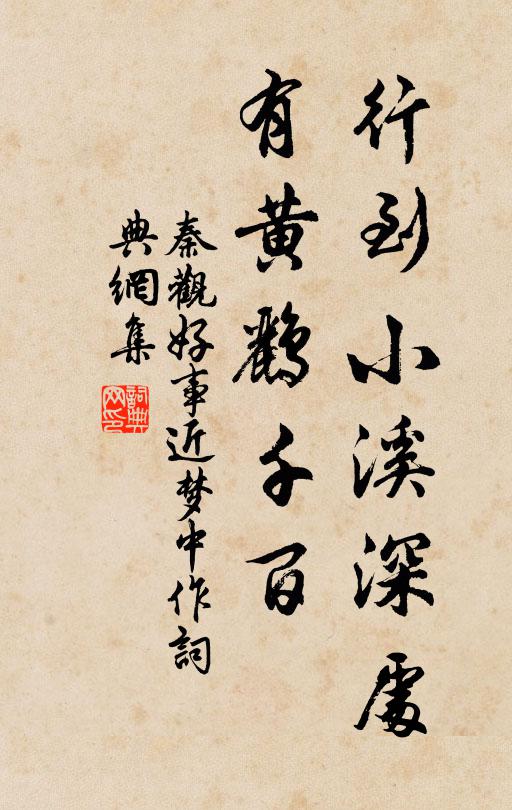 行到小溪深處
有黃鸝千百
秦觀好事近梦中作詞
典網集
詞典网印